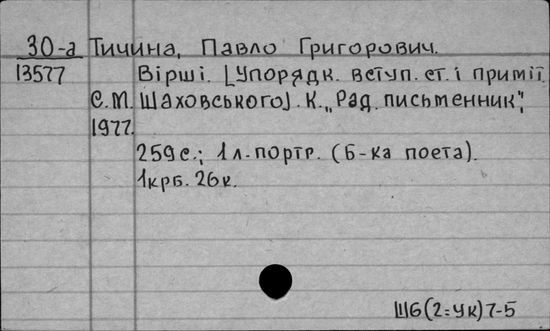 30-а Тичина, Павло Григорович.
13577 Вірші. [Упорядк. вступ. ст. і приміт.
Є. М. Шаховського]. К. "Рад. письменник",
1977.
259 с.; 1 л. портр. (Б-ка поета).
1крб. 26к.
Ш6(2=Ук)7-5